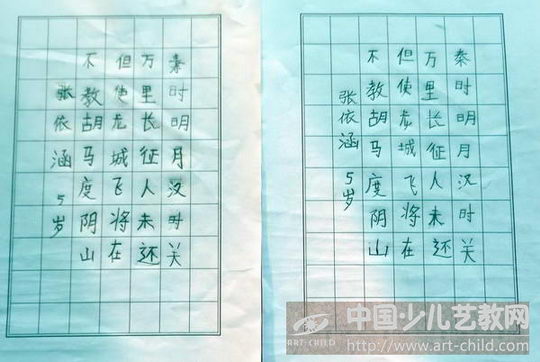 秦时明月汉时关
万里长征人未还
但使龙城飞将在
不教胡马度阴山
张依涵 5岁
秦时明月汉时关
万里长征人未还
但使龙城飞将在
不教胡马度阴山
张依涵 5岁
中国少儿艺教网
ART-CHILD
http://www.art-child.com